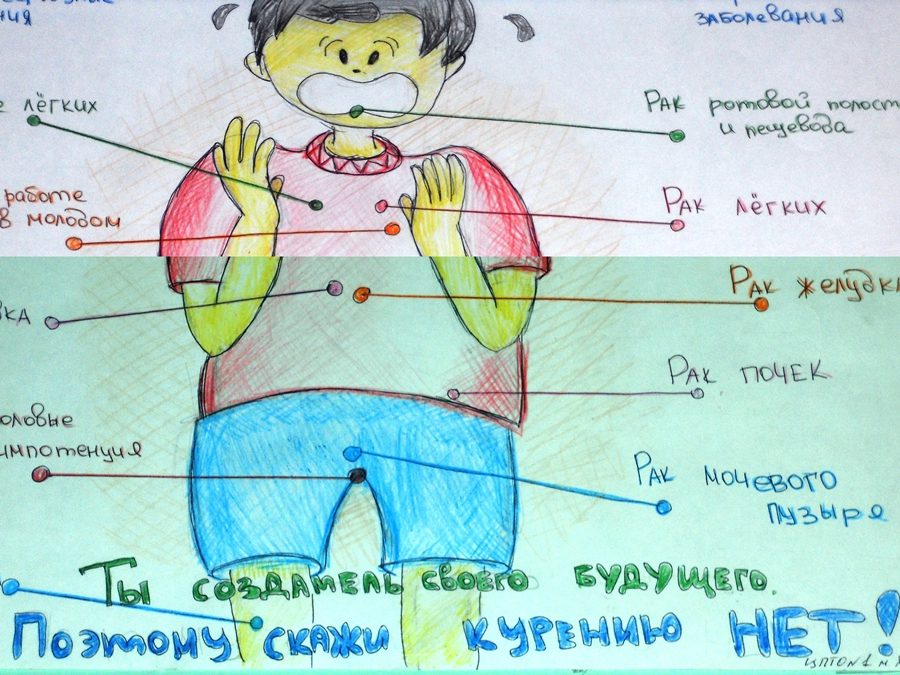 заболевания
лёгких
Рак ротовой полост
и пещевода
работе
в молодом
Рак лёгких
Рак желудк
вка
Рак почек
оловые
импотенция
Рак мочевого
пузыря
Ты создатель своего будущего.
Поэтому скажи курению НЕТ!